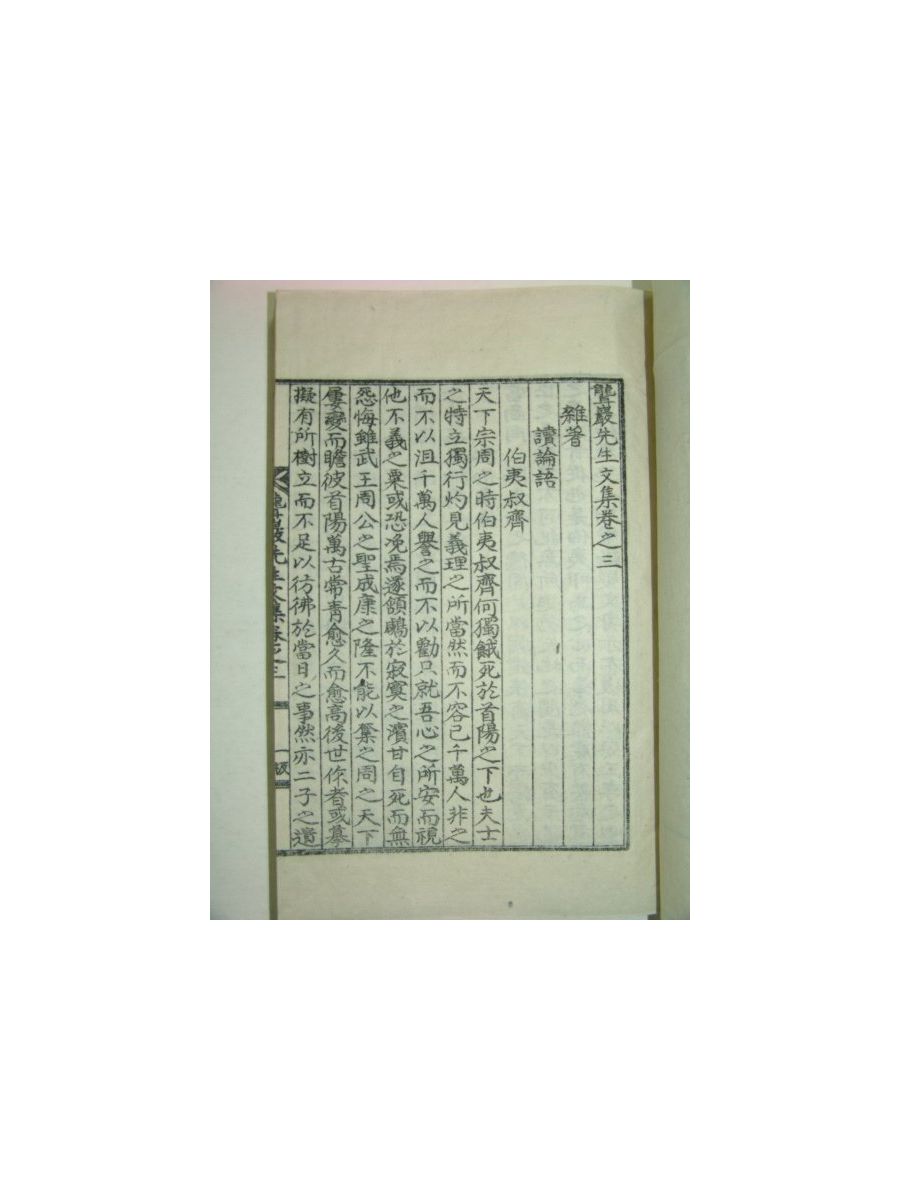 聾巖先生文集卷之三
雜著
讀論語
伯夷叔齊
天下宗周之時伯夷叔齊何獨餓死於首陽之下也夫士
之特立獨行灼見義理之所當然而不容已千萬人非之
而不以沮千萬人譽之而不以勸只就吾心之所安而視
他不義之粟或恐浼焉遂頷顑於寂寞之濱甘自死而無
怨悔雖武王周公之聖成康之隆不能以棄之周之天下
屢變而瞻彼首陽萬古常靑愈久而愈高後世作者或摹
擬有所樹立而不足以彷彿於當日之事然亦二子之遺
聾巖先生文集卷之三
一